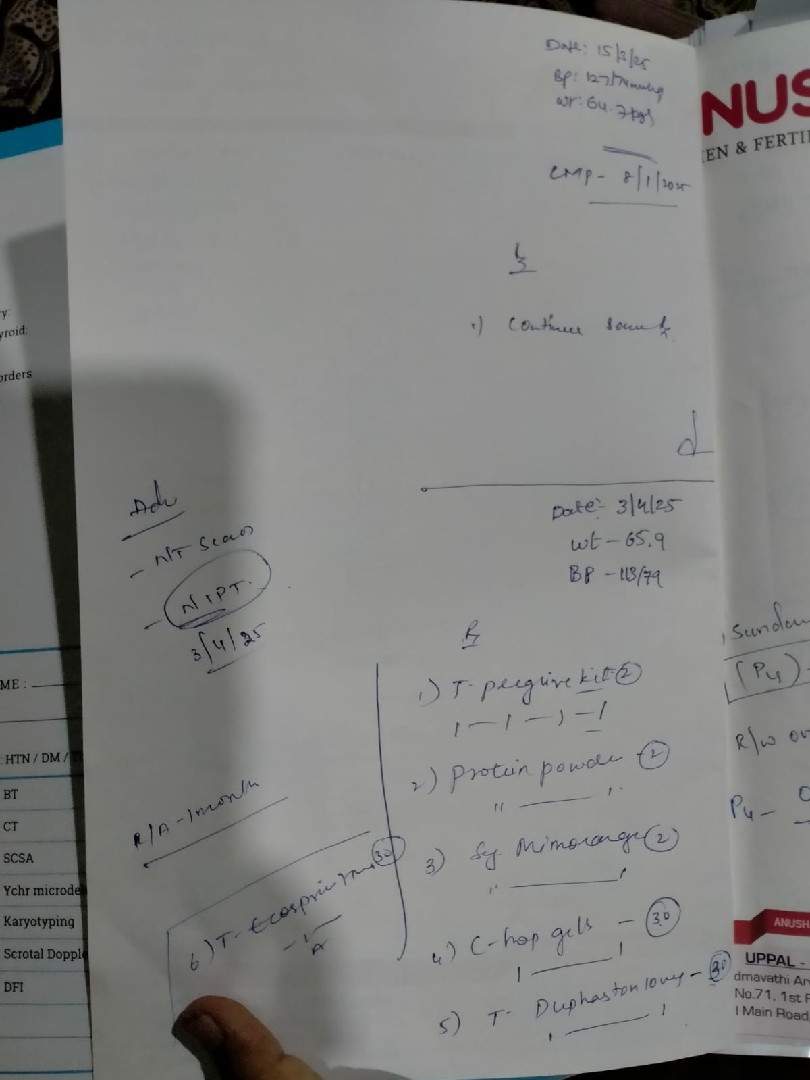 Date: 15/3/25
Bp: 127/
wt: 64.7kgs
LMP - 8/1/2025
1) Continue same
Date: 3/4/25
wt - 65.9
BP - 113/79
Adv
- NT Scan
- NIPT.
3/4/25
R/A - 1month
1) T- kit 2
1 — 1 — 1 — 1
2) Protein powder - 2
" — "
3) Sy. 2
" —
4) C- gels - 30
1 — 1
5) T- Duphaston 10mg - 30
1 — 1
6) T- Ecosprin 30
NUS
EN & FERTI
y:
yroid:
orders
ME :
: HTN / DM /
BT
CT
SCSA
Ychr microde
Karyotyping
Scrotal Dopple
DFI
(P4)
R/w
P4 -
ANUSH
UPPAL -
dmavathi Ar
No.71, 1st F
l Main Road